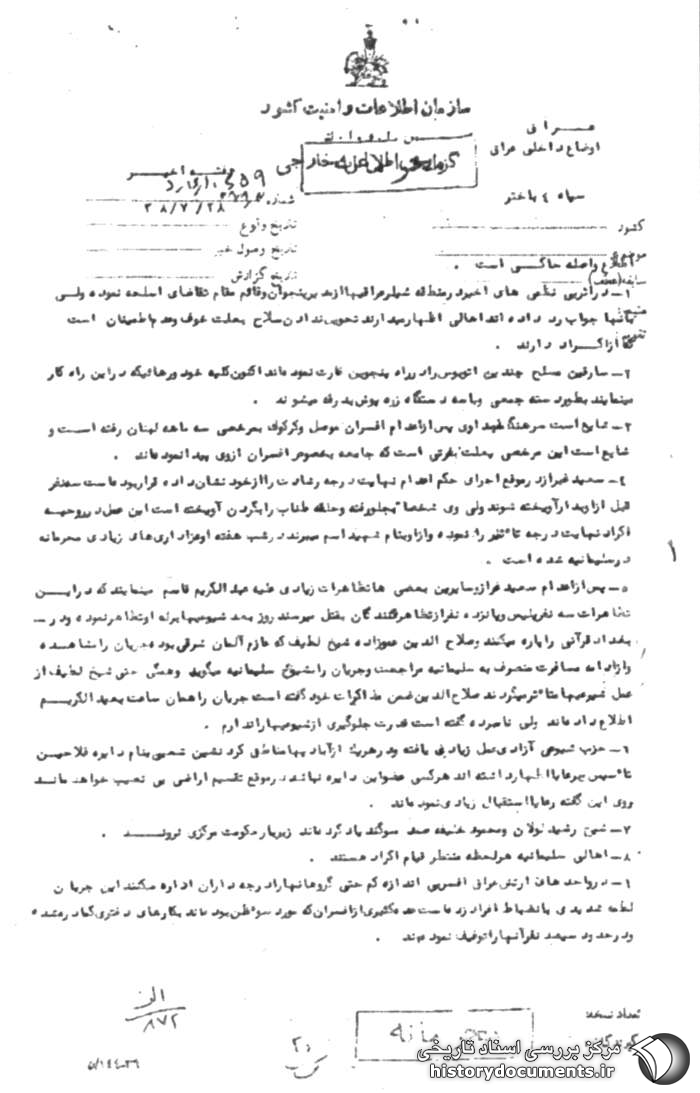 سازمان اطلاعات و امنیت کشور
عراق
اوضاع داخلی عراق
گزارش اطلاعات خارجی
سپاه ٤ باختر
شماره
۳۸/۷/۲۸
کشور
تاریخ وقوع
موضوع
تاریخ وصول خبر
تاریخ گزارش
اطلاع واصله حاکی است .
۱- در اثر بی نظمی های اخیر در منطقه شیلر عراقیها از مدیر پنجوین و قائم مقام تقاضای اسلحه نموده ولی
بآنها جواب رد داده اند اهالی اظهار میدارند تحویل ندادن سلاح بعلت خوف و عدم اطمینان است
که از اکراد دارند .
۲- سارقین مسلح چندین اتوبوس را در راه پنجوین غارت نموده اند اکنون کلیه خودروهائیکه در این راه کار
مینمایند بطور دسته جمعی و با سه دستگاه زره پوش بدرقه میشوند .
۳- شایع است سرهنگ مهداوی پس از اعدام افسران موصل و کرکوک بمرخصی سه ماهه لبنان رفته است و
شایع است این مرخصی بعلت نفرتی است که جامعه بخصوص افسران از وی پیدا نموده اند .
٤- سعید قزاز در موقع اجرای حکم اعدام نهایت درجه رشادت را از خود نشان داده قرار بوده است سه نفر
قبل از او بدار آویخته شوند ولی وی شخصا بجلو رفته و حلقه طناب را بگردن آویخته است این عمل در روحیه
اکراد نهایت درجه تاثیر را نموده و از او بنام شهید اسم میبرند در شب هفته او عزاداری های زیادی محرمانه
در سلیمانیه شده است .
۵- پس از اعدام سعید قزاز و سایرین بعضی ها تظاهرات زیادی علیه عبدالکریم قاسم مینمایند که در این
تظاهرات سه نفر پلیس و پانزده نفر از تظاهرکنندگان بقتل میرسند روز بعد شیوعیها برله او تظاهر نموده و در
بغداد قرآنی را پاره میکنند و صلاح الدین عموزاده شیخ لطیف که عازم آلمان شرقی بوده جریان را مشاهده
و از ادامه مسافرت منصرف به سلیمانیه مراجعت و جریان را بشیوخ سلیمانیه میگوید و همگی حتی شیخ لطیف از
عمل شیوعیها متاثر میگردند صلاح الدین ضمن مذاکرات خود گفته است جریان را همان ساعت بعبدالکریم
اطلاع داده اند ولی نامبرده گفته است قدرت جلوگیری از شیوعیها را ندارم .
٦- حزب شیوعی آزادی عمل زیادی یافته و در هریک از آبادیها و مناطق کرد نشین شعبی بنام دایره فلاحین
تاسیس و برعایا اظهار داشته اند هر کسی عضو این دایره نباشد در موقع تقسیم اراضی بی نصیب خواهد ماند
روی این گفته رعایا استقبال زیادی نموده اند .
۷- شیخ رشید لولان و محمود خلیفه صمد سوگند یاد کرده اند زیر بار حکومت مرکزی نروند .
۸- اهالی سلیمانیه هر لحظه منتظر قیام اکراد هستند .
۹- در واحدهای ارتش عراق افسر بی اندازه کم حتی گروهانها را درجه داران اداره میکنند این جریان
لطمه شدیدی بانضباط افراد زده است عده کثیری از افسران که مورد سوءظن بوده اند بکارهای دفتری گمارده شده
و در حدود سیصد نفر آنها را توقیف نموده اند .
الف
۸۷۲
تعداد نسخه
مرکز بررسی اسناد تاریخی
historydocuments.ir